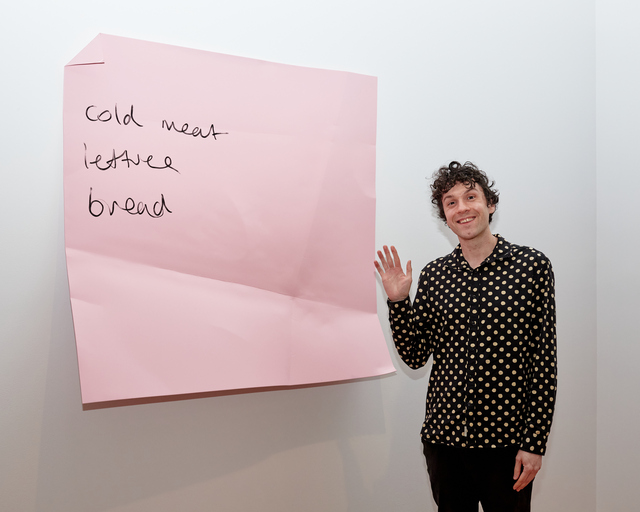 cold meat
lettuce
bread